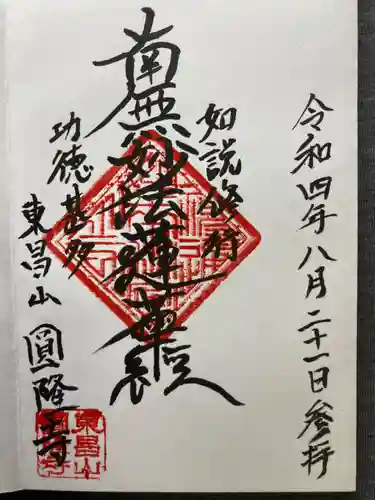 令和四年八月二十一日参拝
如説修行
南無妙法蓮華経
功徳甚多
東昌山 圓隆寺
東昌山